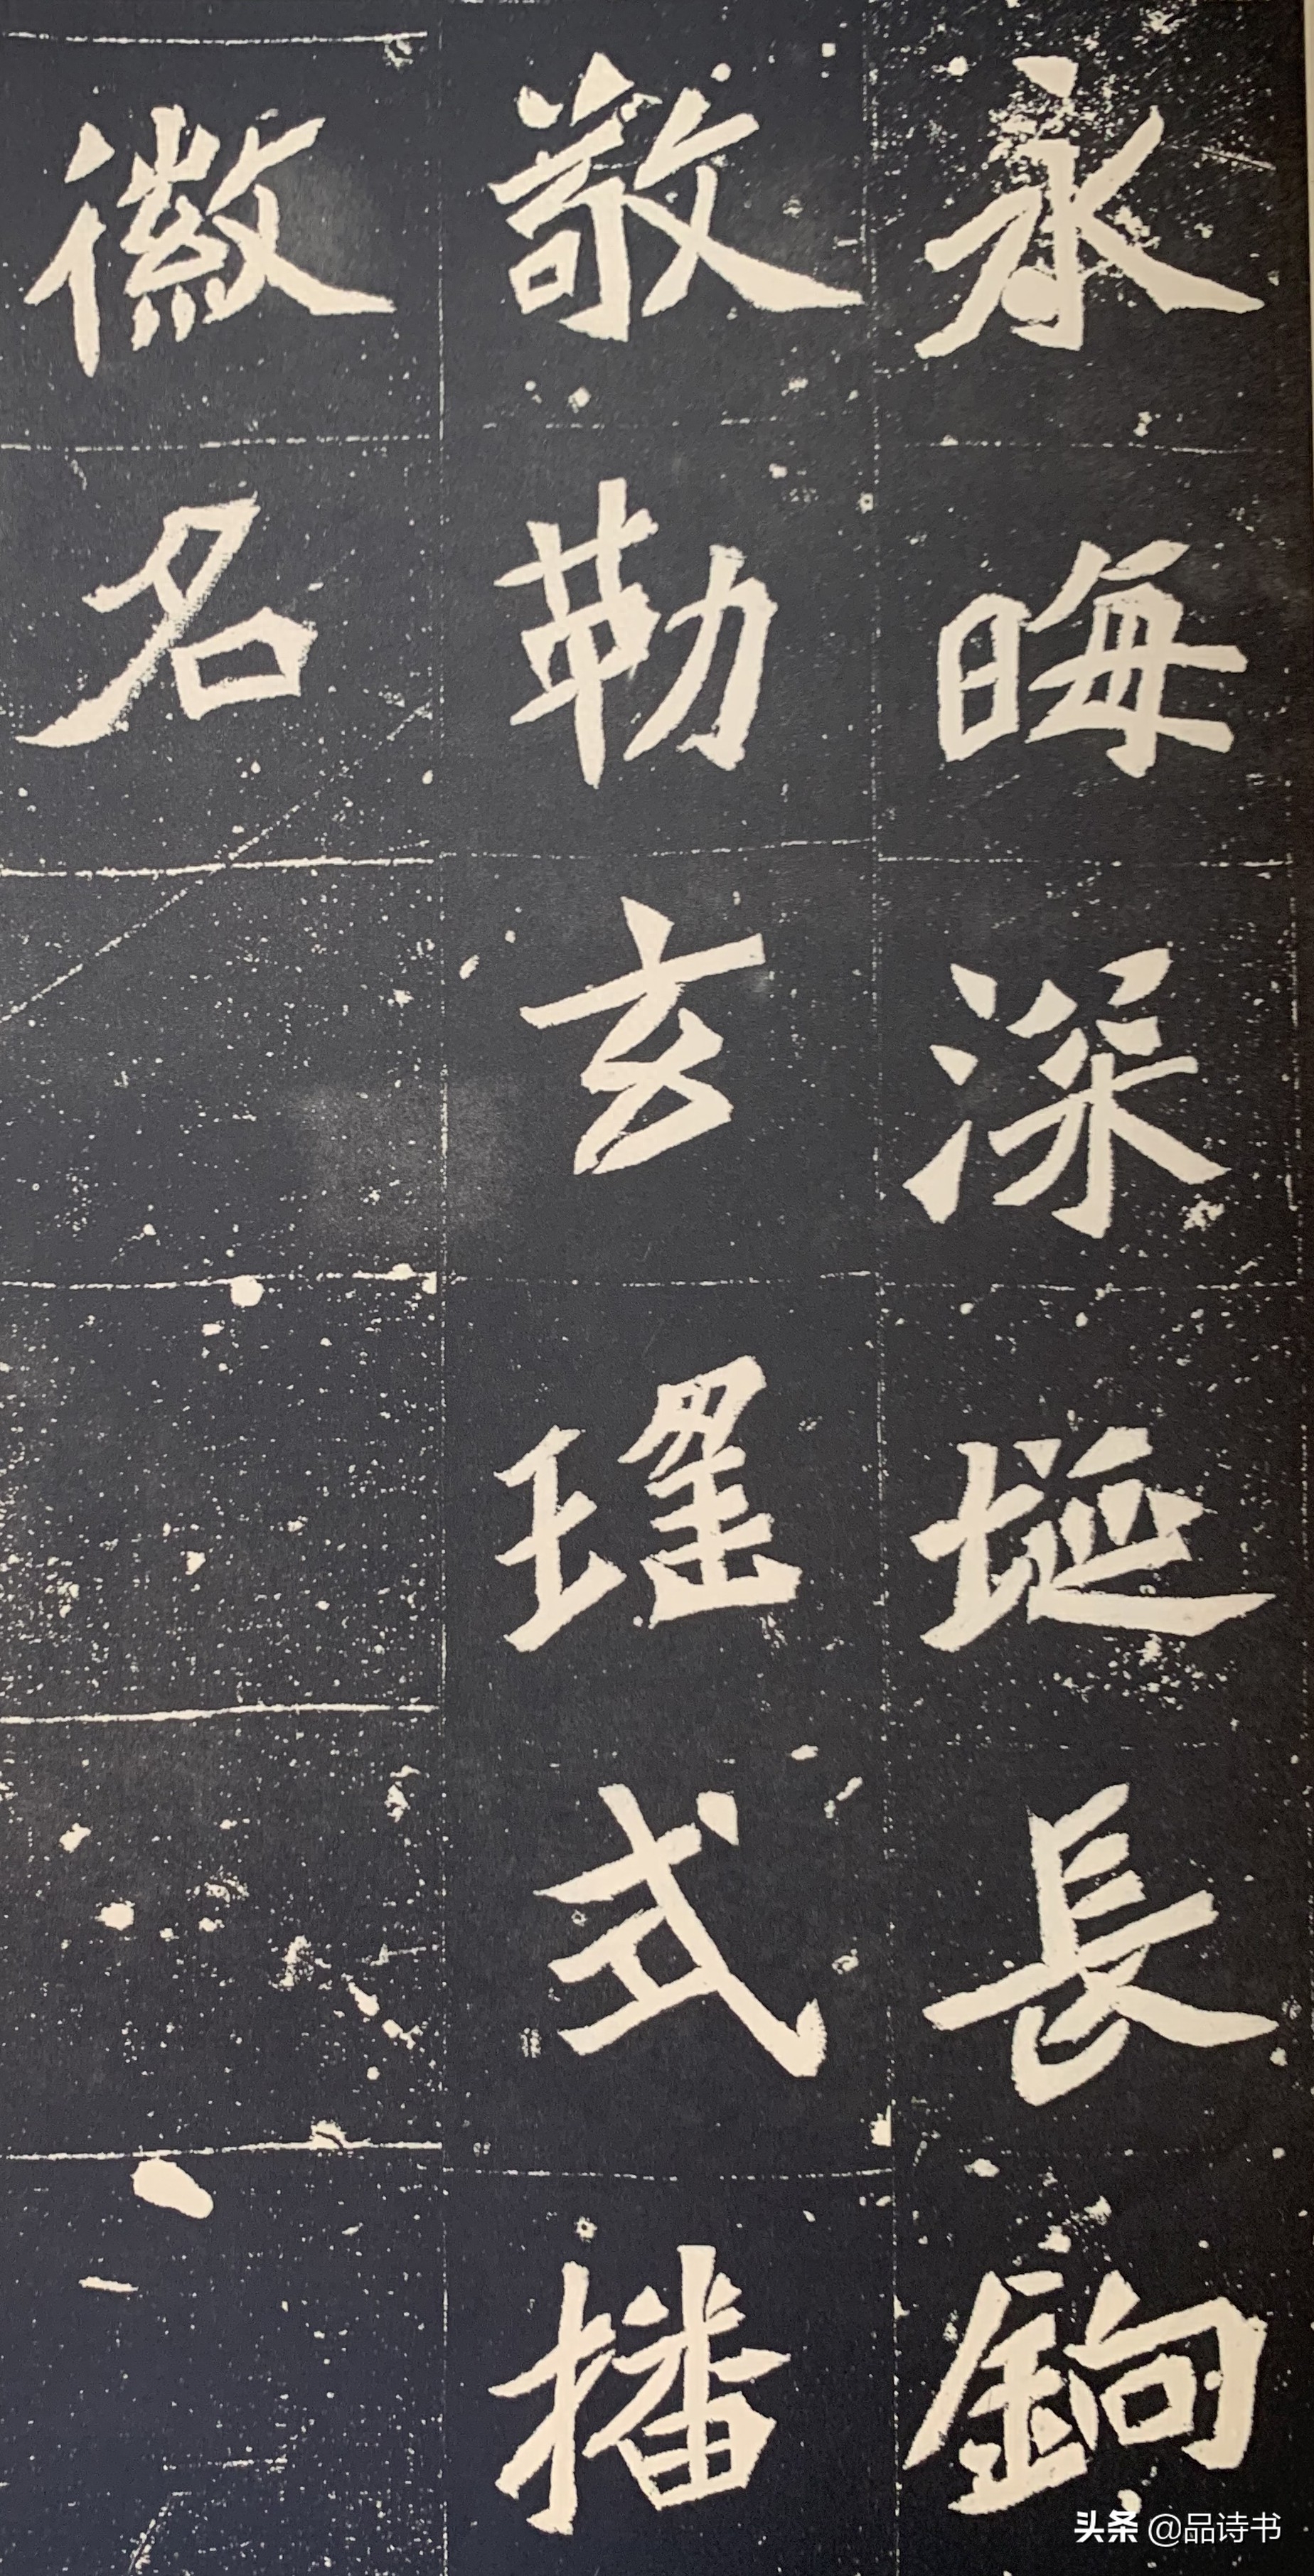 永晦深埏長銁
敬勒玄瑤式播
徽名
头条 @品诗书